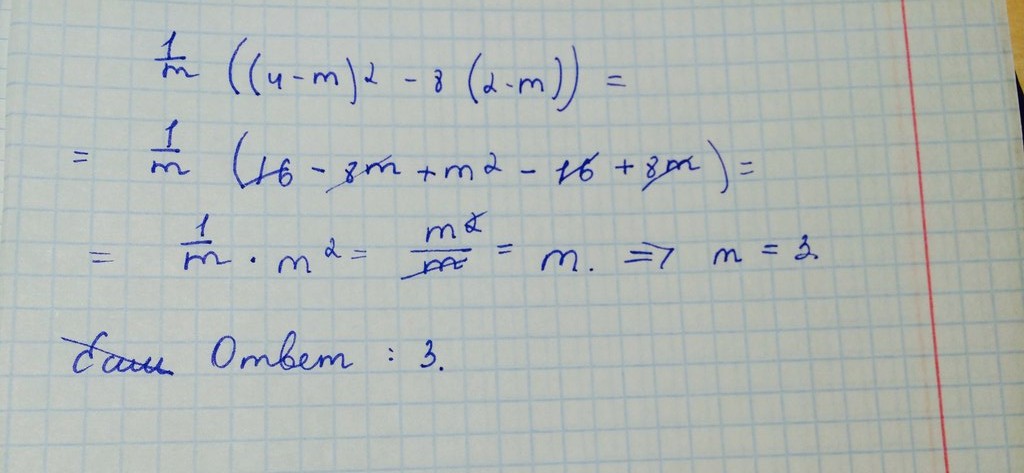 1/m ((4-m)² - 8 (2-m)) =
= 1/m (16 - 8m + m² - 16 + 8m) =
= 1/m · m² = m²/m = m. => m = 3.
Ответ : 3.